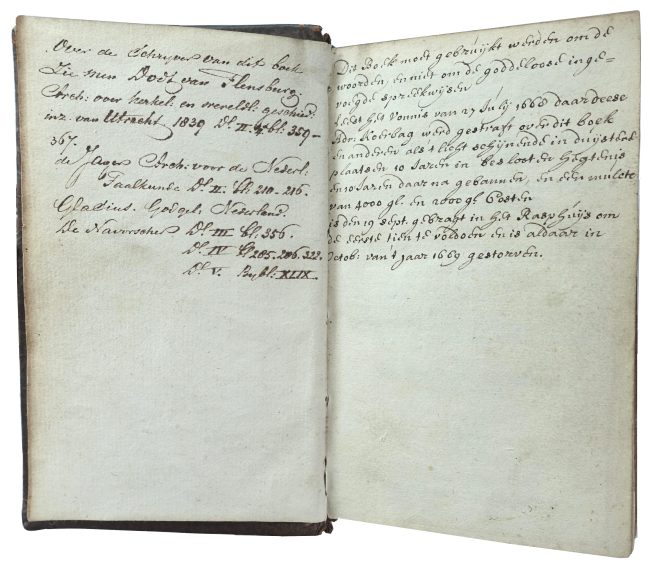 Over de Schryver van dit boek
Zie men Dodt van Flensburg.
Arch: over kerkel. en wereldl. geschied.
inz. van Utrecht 1839 Dl. II. bl: 359-
367.
de Jager Arch: voor de Nederl:
Taalkunde Dl. II. bl: 210-216.
Glasius. Godgel. Nederland.
De Navorscher Dl. III bl. 356.
Dl. IV bl 285. 286. 322.
Dl. V. Bybl: XLIX.
Dit Boek moet gebruijkt werden om de
woorden, en niet om de goddeloose inge-
voegde spreekwijsen
Leest het vonnis van 27 Julij 1668 daar deese
Adr: Koerbag werd gestraft over dit boek
en anderen als 't licht schijnende in duijstere
plaatsen 10 Jaren in besloten hegtenis
en 10 Jaren daar na gebannen, en een mulcte
van 4000 gl. en 2000 gl Costen
is den 19 sept. gebragt in het Rasphuijs om
de eerste tien te voldoen en is aldaar in
octob: van 't jaar 1669 gestorven.